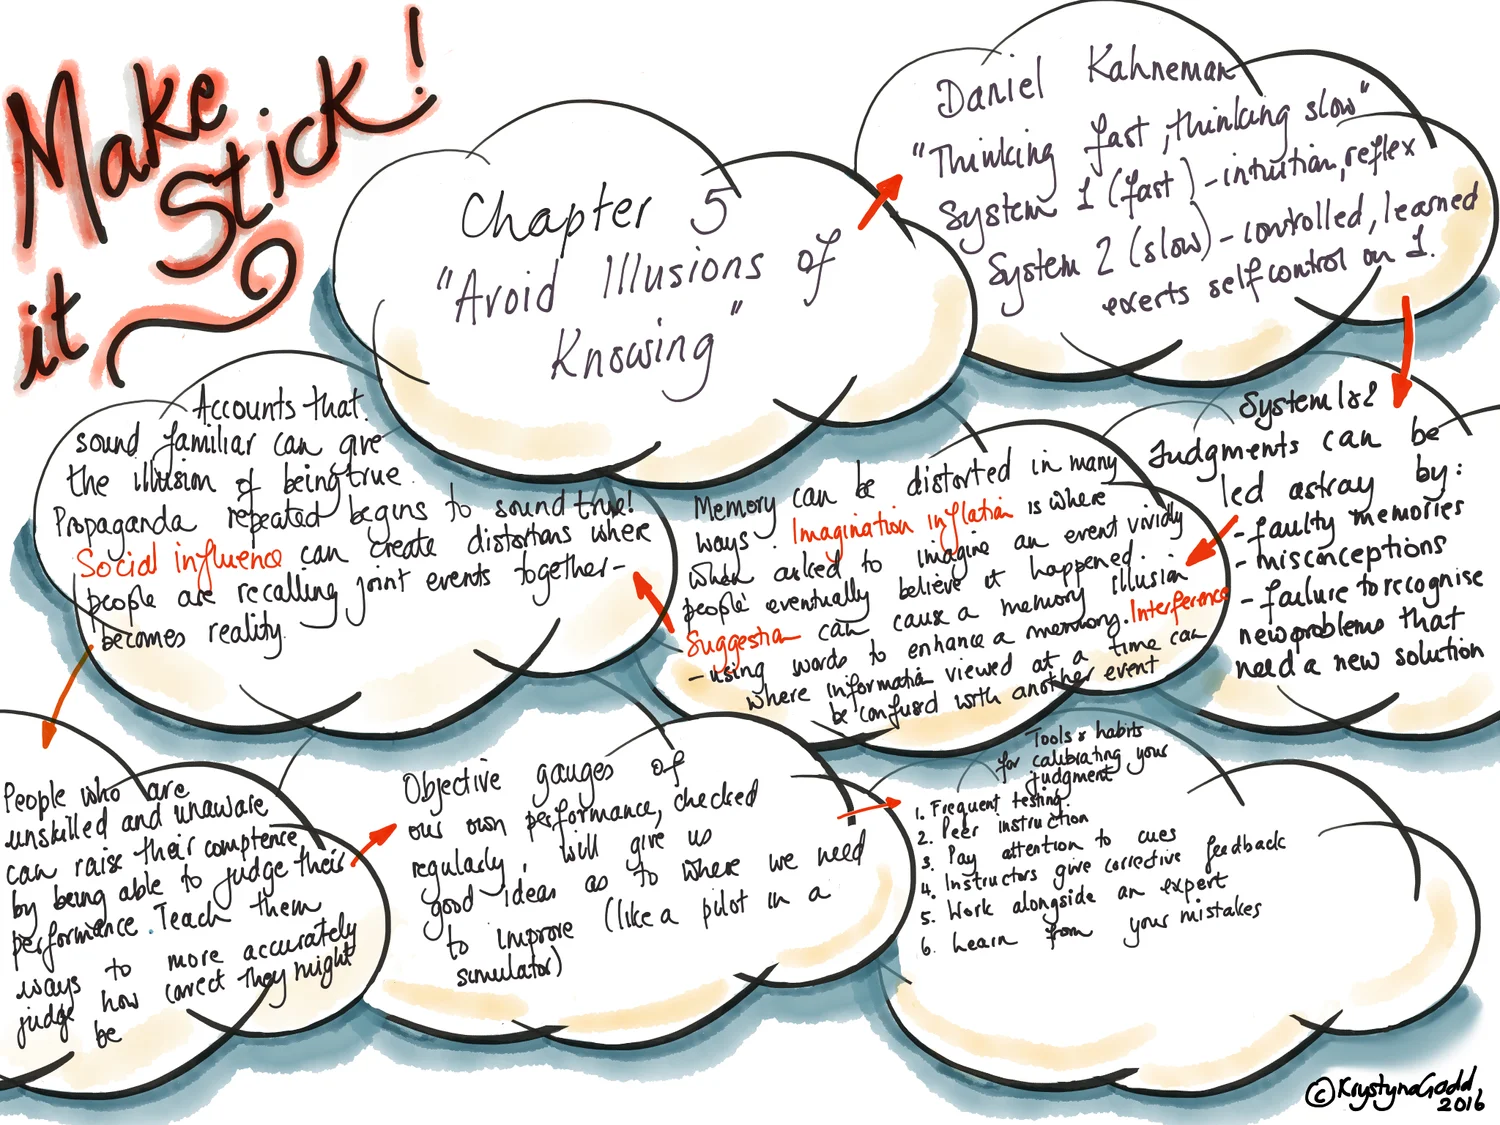 Make
it
Stick!
Chapter 5
"Avoid Illusions of
Knowing"
Daniel Kahneman
"Thinking fast, thinking slow"
System 1 (fast) - intuition, reflex
System 2 (slow) - controlled, learned
exerts self control on 1.
System 1&2
Judgments can be
led astray by:
- faulty memories
- misconceptions
- failure to recognise
new problems that
need a new solution
Memory can be distorted in many
ways. Imagination inflation is where
when asked to imagine an event vividly
people eventually believe it happened.
Suggestion can cause a memory illusion
- using words to enhance a memory. Interference
where information viewed at a time can
be confused with another event
Accounts that
sound familiar can give
the illusion of being true.
Propaganda repeated begins to sound true!
Social influence can create distortions where
people are recalling joint events together -
becomes reality
People who are
unskilled and unaware
can raise their comptence
by being able to judge their
performance. Teach them
ways to more accurately
judge how correct they might
be
Objective gauges of
our own performance, checked
regularly, will give us
good ideas as to where we need
to improve (like a pilot in a
simulator)
Tools & habits
for calibrating your
judgment
1. Frequent testing.
2. Peer instruction
3. Pay attention to cues
4. Instructors give corrective feedback
5. Work alongside an expert
6. Learn from your mistakes
©KrystynaGadd
2016